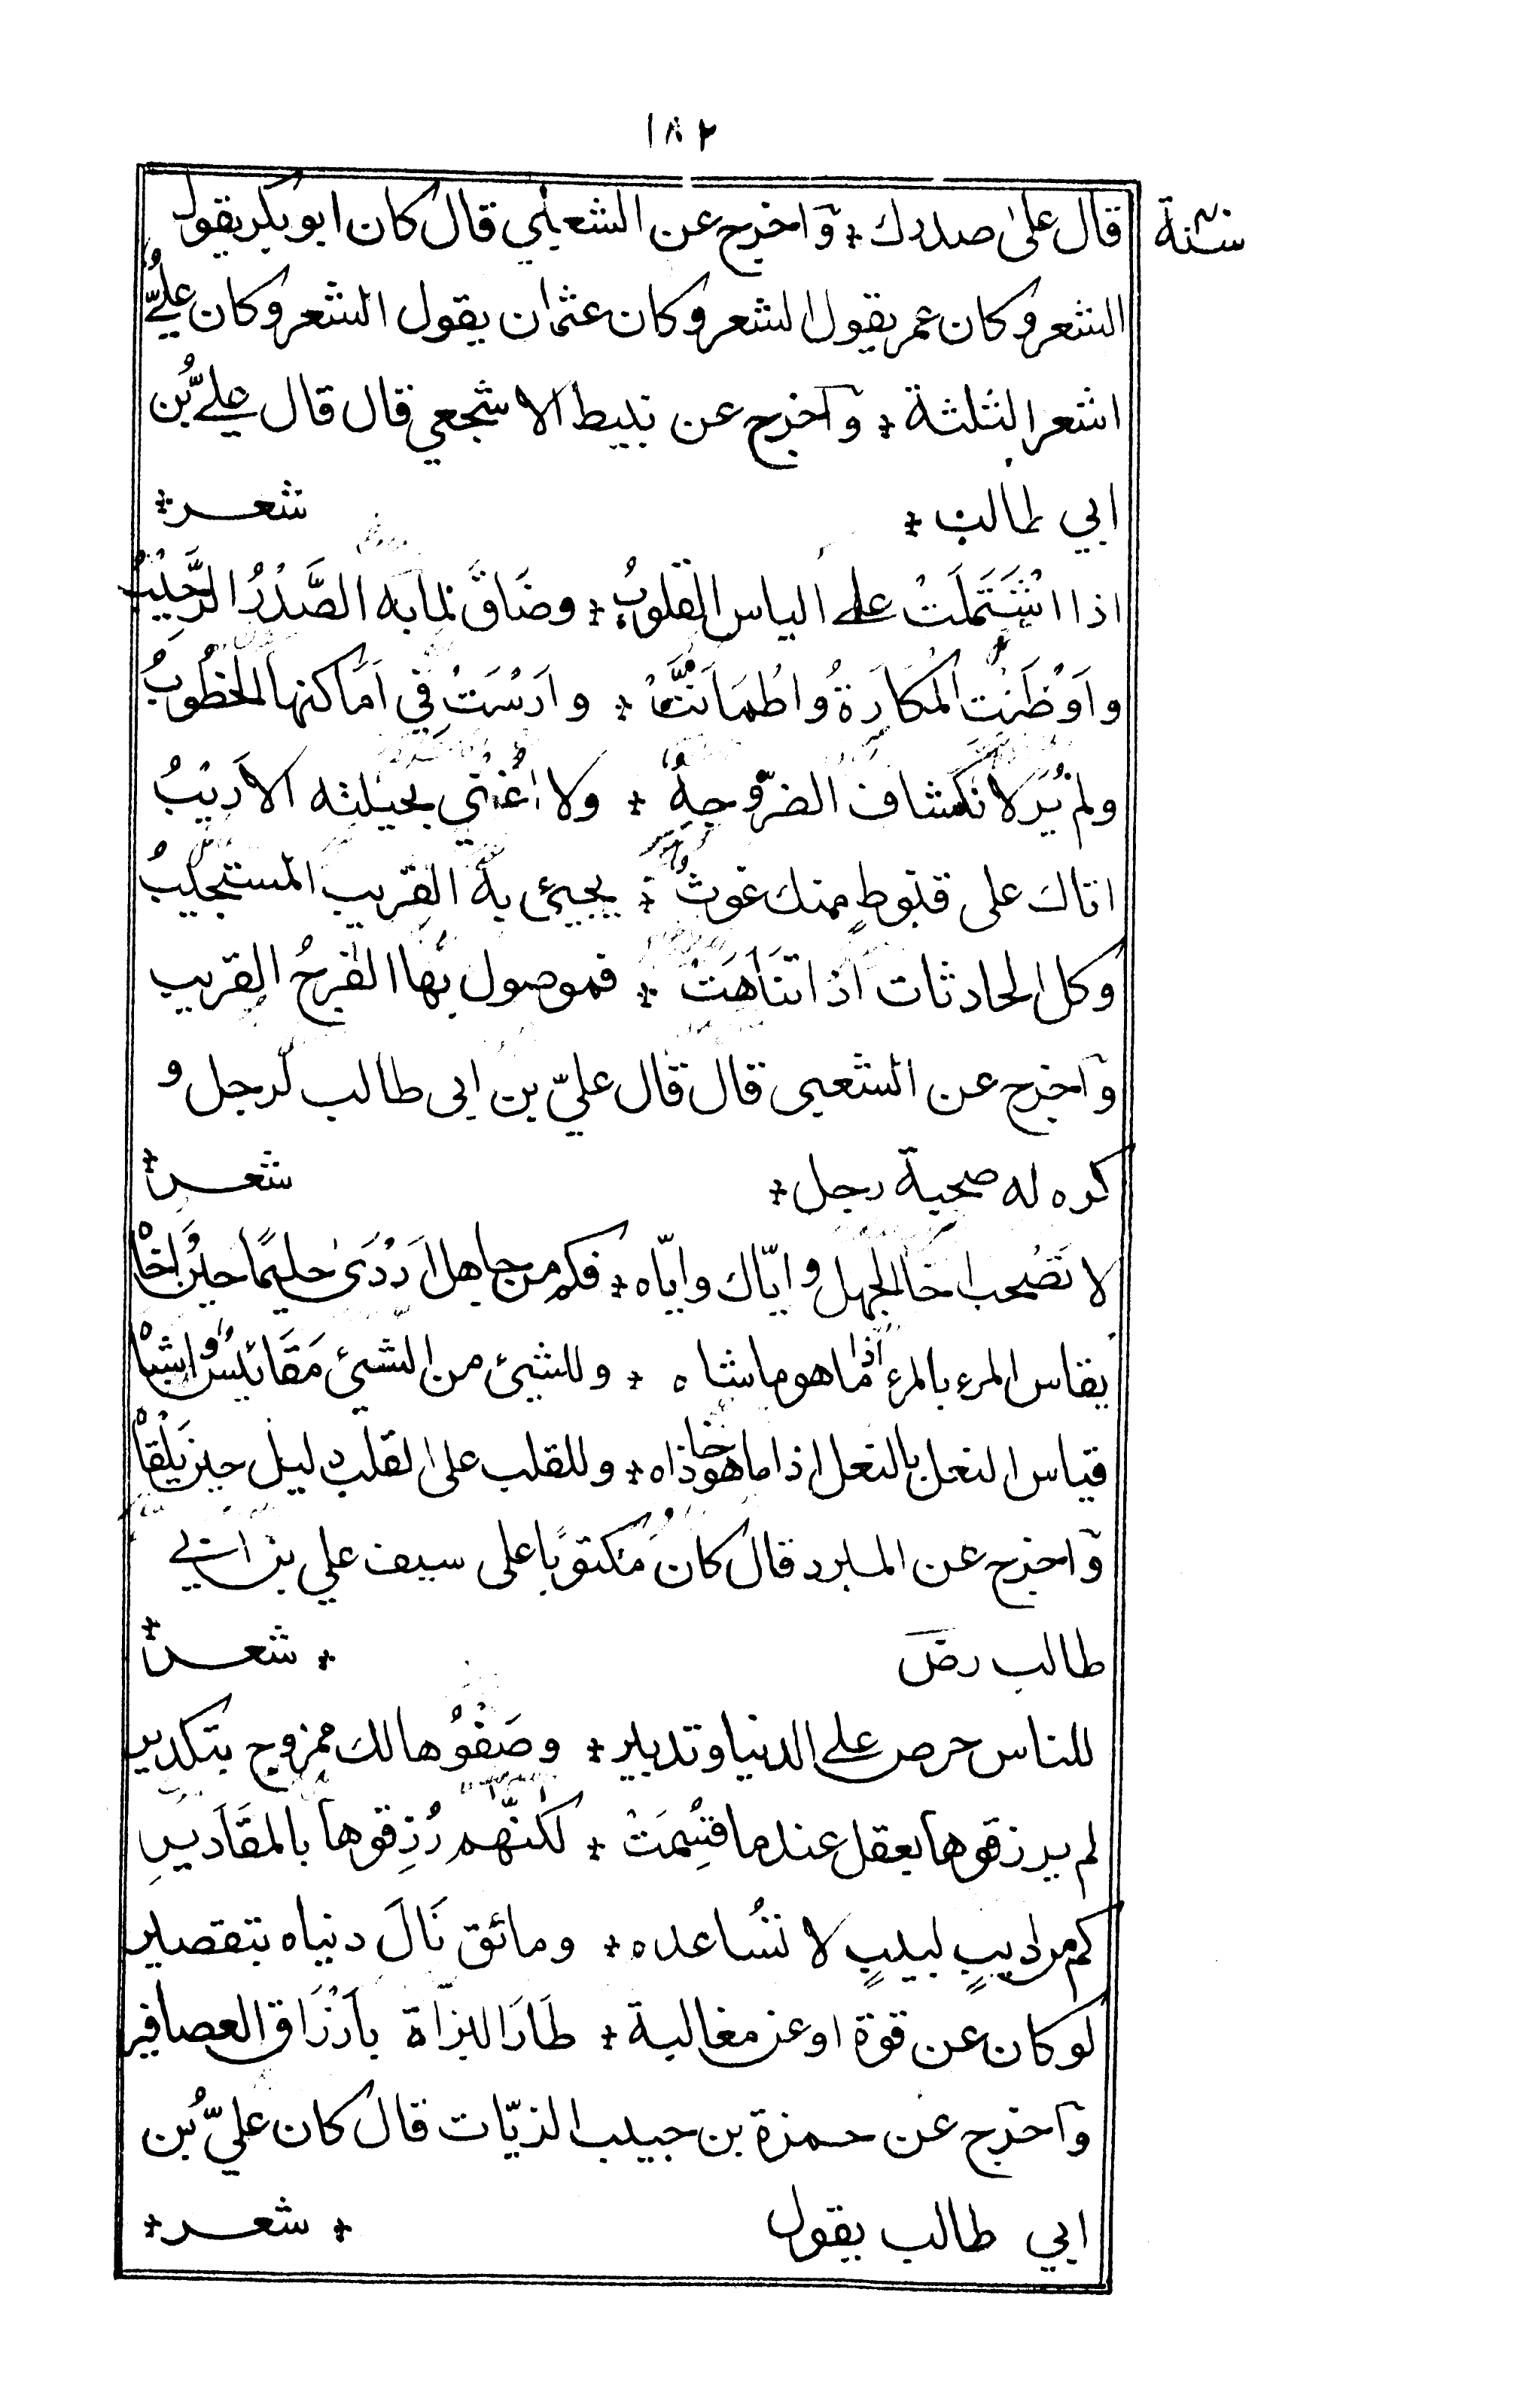 ١٨٢
سنة
قال على صدرك ⁕ وٓاخرج عن الشعبي قال كان ابو بكر يقول
الشعر وكان عمر يقول الشعر وكان عثمان يقول الشعر وكان عليٌّ
اشعر الثلثة ⁕ وٓاخرج عن نبيط الاشجعي قال قال عليُّ بن
ابي طالب ⁕ شعر ⁕
اذا اشْتَمَلَتْ على الياس القلوبُ ⁕ وضَاقَ لما به الصَّدْرُ الرَّحِيْبُ
واَوْطَنَتِ المكَارَةُ واطْمَاَنَّتْ ⁕ واَرْسَتْ في اَمَاكنها الخطُوبُ
ولم يُرَ لانكشاف الضرّ وجهٌ ⁕ ولا اغْنٰي بحيلته الاَرِيْبُ
اتاك على قنوطٍ منك غوثٌ ⁕ يجيئ به القريب المستجيبُ
وكل الحادثات اذا تَنَاهَتْ ⁕ فموصول بها الفرجُ القريب
وٓاخرج عن الشعبى قال قال عليّ بن ابى طالب لرجل و
كره له صحبة رجل ⁕ شعر ⁕
لا تَصْحب اخا الجهل و ايّاك وايّاه ⁕ فكم من جاهل اَرْدٰى حليمًا حيْنَ اخَاهْ
يقاس المرء بالمرء اذا ما هو ماشاه ⁕ وللشيئ من الشيئ مَقَائيْسٌ واشباهْ
قياس النعل بالنعل اذا ما هو حاذاه ⁕ وللقلب على القلب دليل حين يَلْقاهْ
وٓاخرج عن المبرد قال كان مَكتوبًا على سيف علي بن ابي
طالب رضـ ⁕ شعر ⁕
للناس حرص على الدنيا وتدبير ⁕ وصَفْوُها لك ممزوج بتكدير
لم يرزقوها بعقل عندما قُسِمَتْ ⁕ لكنّهم رُزِقوها بالمقَادِيرِ
كم من اديبٍ لبيبٍ لا تُسَاعده ⁕ ومائق نَالَ دنياه بتقصير
لو كان عن قوة او عن مغالبة ⁕ طَارَ البزاة بِاَرْزَاقِ العصافير
وٓاخرج عن حمزة بن حبيب الزيّات قال كان عليّ بُن
ابي طالب يقول ⁕ شعر ⁕